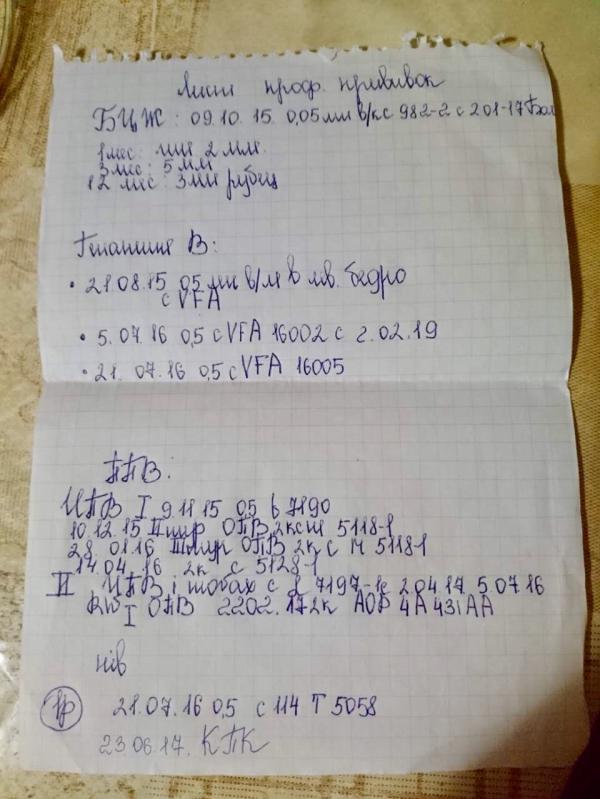 Лист проф. прививок
БЦЖ: 09.10.15 0,05 мл в/к с 982-2 с 201-17
1 мес: 2 мм
3 мес: 5 мм
12 мес: 3 мм рубец
Гепатит В:
• 21.08.15 05 мл в/м в лв. бедро
с VFA
• 5.07.16 0,5 с VFA 16002 с г. 02.19
• 21.07.16 0,5 с VFA 16005
ППВ:
ИПВ I 9.11.15 05 7190
10.12.15 II ОПВ 2к 5118-1
28.01.16 III ОПВ 2к с М 5118-1
14.04.16 2к с 5128-1
II ИПВ і с 7197-1 с 2.04.17 5.07.16
RW I ОПВ 2202.17 2к АОР 4А431АА
КПК
1р 21.07.16 0,5 с 114 Т 5058
23.06.17. КПК